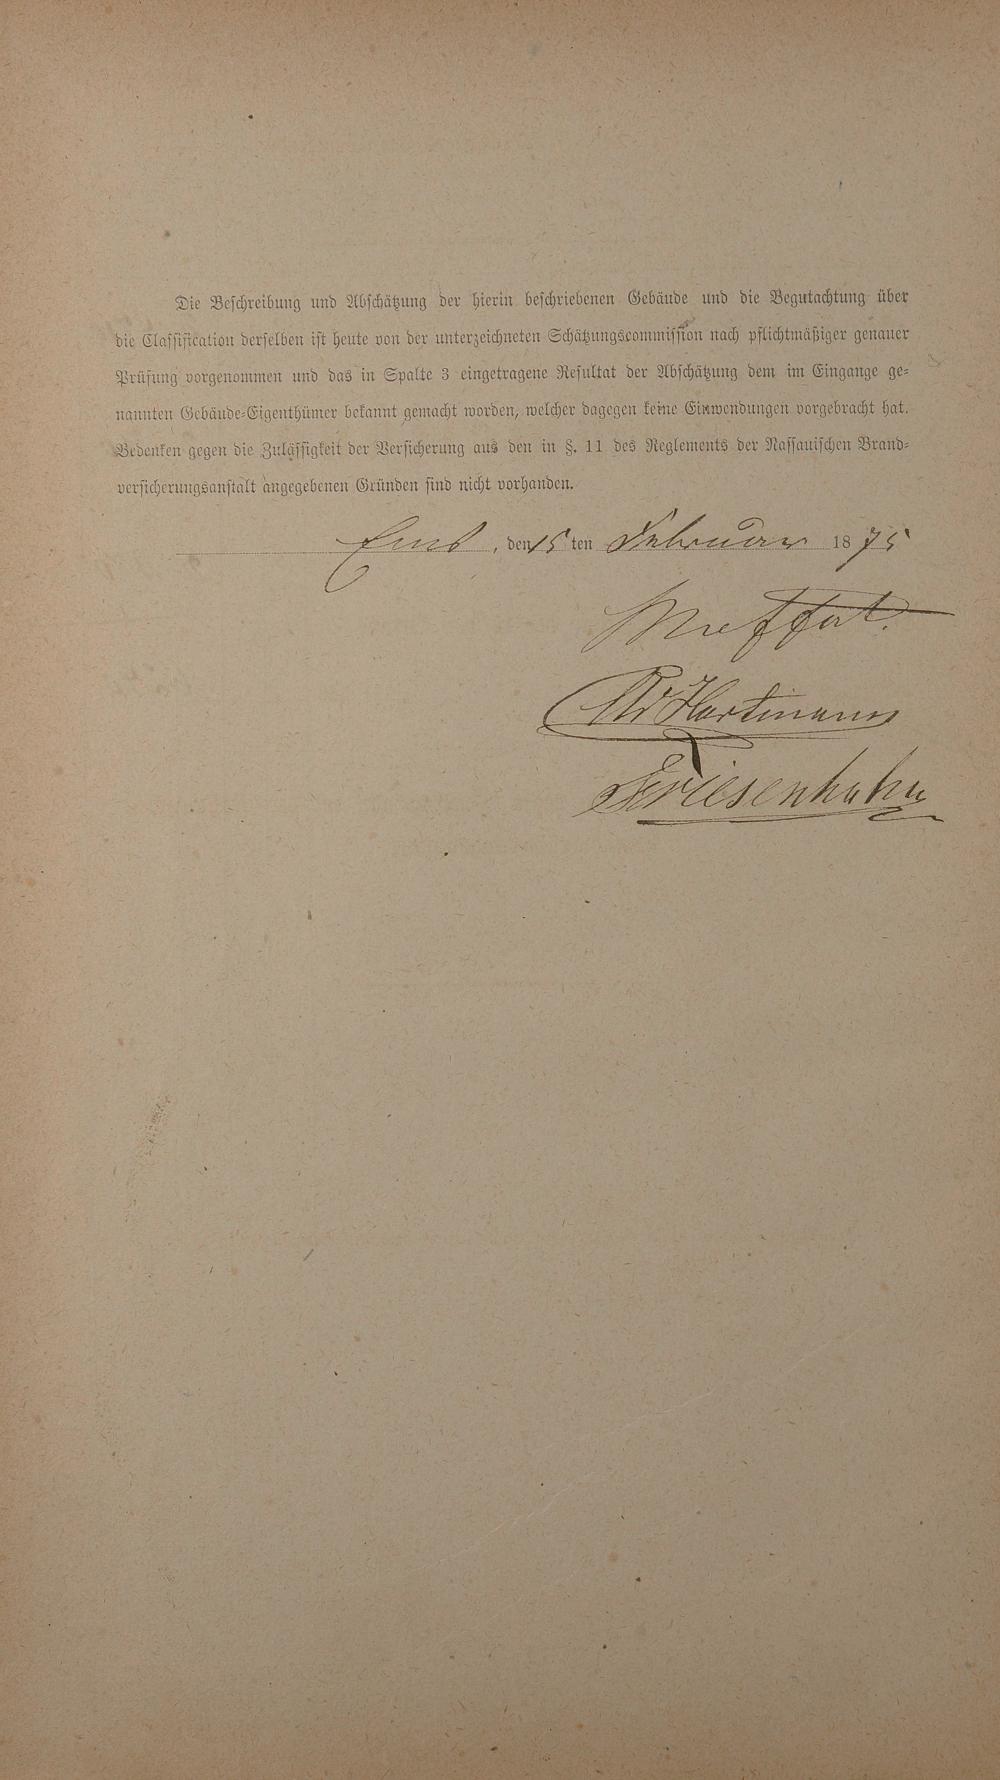 Die Beschreibung und Abschätzung der hierin beschriebenen Gebäude und die Begutachtung über
die Classification derselben ist heute von der unterzeichneten Schätzungscommission nach pflichtmäßiger genauer
Prüfung vorgenommen und das in Spalte 3 eingetragene Resultat der Abschätzung dem im Eingange ge-
nannten Gebäude-Eigenthümer bekannt gemacht worden, welcher dagegen keine Einwendungen vorgebracht hat.
Bedenken gegen die Zulässigkeit der Versicherung aus den in §. 11 des Reglements der Nassauischen Brand-
versicherungsanstalt angegebenen Gründen sind nicht vorhanden.
Ems, den 15 ten Februar 1875
Meffert.
Hartmann
Friesenhahn